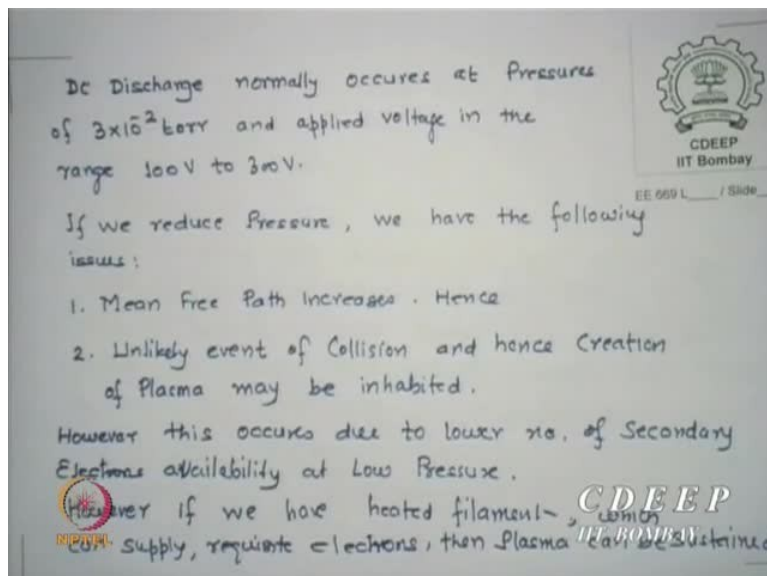 DC Discharge normally occures at Pressures
of 3x10^-2 torr and applied voltage in the
range 100V to 300V.
CDEEP
IIT Bombay
EE 669 L____/ Slide__
If we reduce Pressure, we have the following
issues:
1. Mean Free Path Increases. Hence
2. Unlikely event of Collision and hence Creation
of Plasma may be inhabited.
However this occures due to lower no. of Secondary
Electrons availability at Low Pressure.
However if we have heated filament, which
can supply, requisite electrons, then Plasma can be sustained
NPTEL
CDEEP
IIT BOMBAY